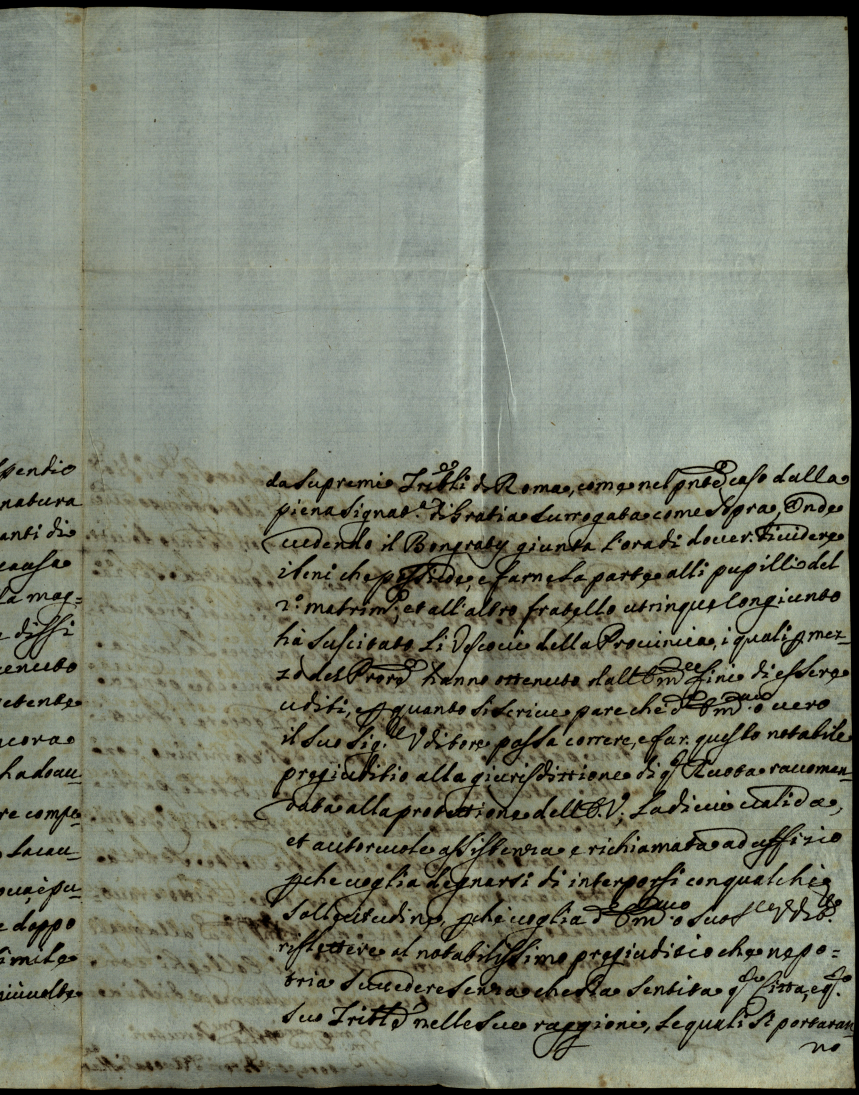 spendio
natura
anti di
causa
la mag-
e dissi
tenuto
petente
ancora
La doau-
re compe-
Lacau-
è pu-
e doppo
simile
più volte
da Supremi Tribli di Roma, come nel pnte caso dalla
piena Signat.a di Gratia Surrogata come Sopra, Onde
vedendo il Bongraty giunta l'ora di dover dividere
i beni che possede, e farne la parte alli pupilli del
2.o matrim.o, et all'altro fratello utrinque Congiunto
hà suscitato li Vescovi della Provincia, i quali p mez-
zo del hanno ottenuto dall'Em.o fine di essere
uditi, e p quanto si scrive pare che d.o Em.o o vero
il suo Sig.re Uditore possa correre, e far questo notabile
pregiuditio alla giurisdittione di q.a Ruota raccoman-
data alla protettione dell'E.V.; La di cui valida,
et autorevole assistenza è richiamata ad uffizio
pche voglia degnarsi di interporsi con qualche
Sollecitudine, pche voglia d.o Em.o o suo
riflettere al notabilissimo pregiuditio che ne po=
tria succedere senza che sia sentita q.a Città, e q.o
suo Trible nelle sue raggioni, le quali si portaran
no